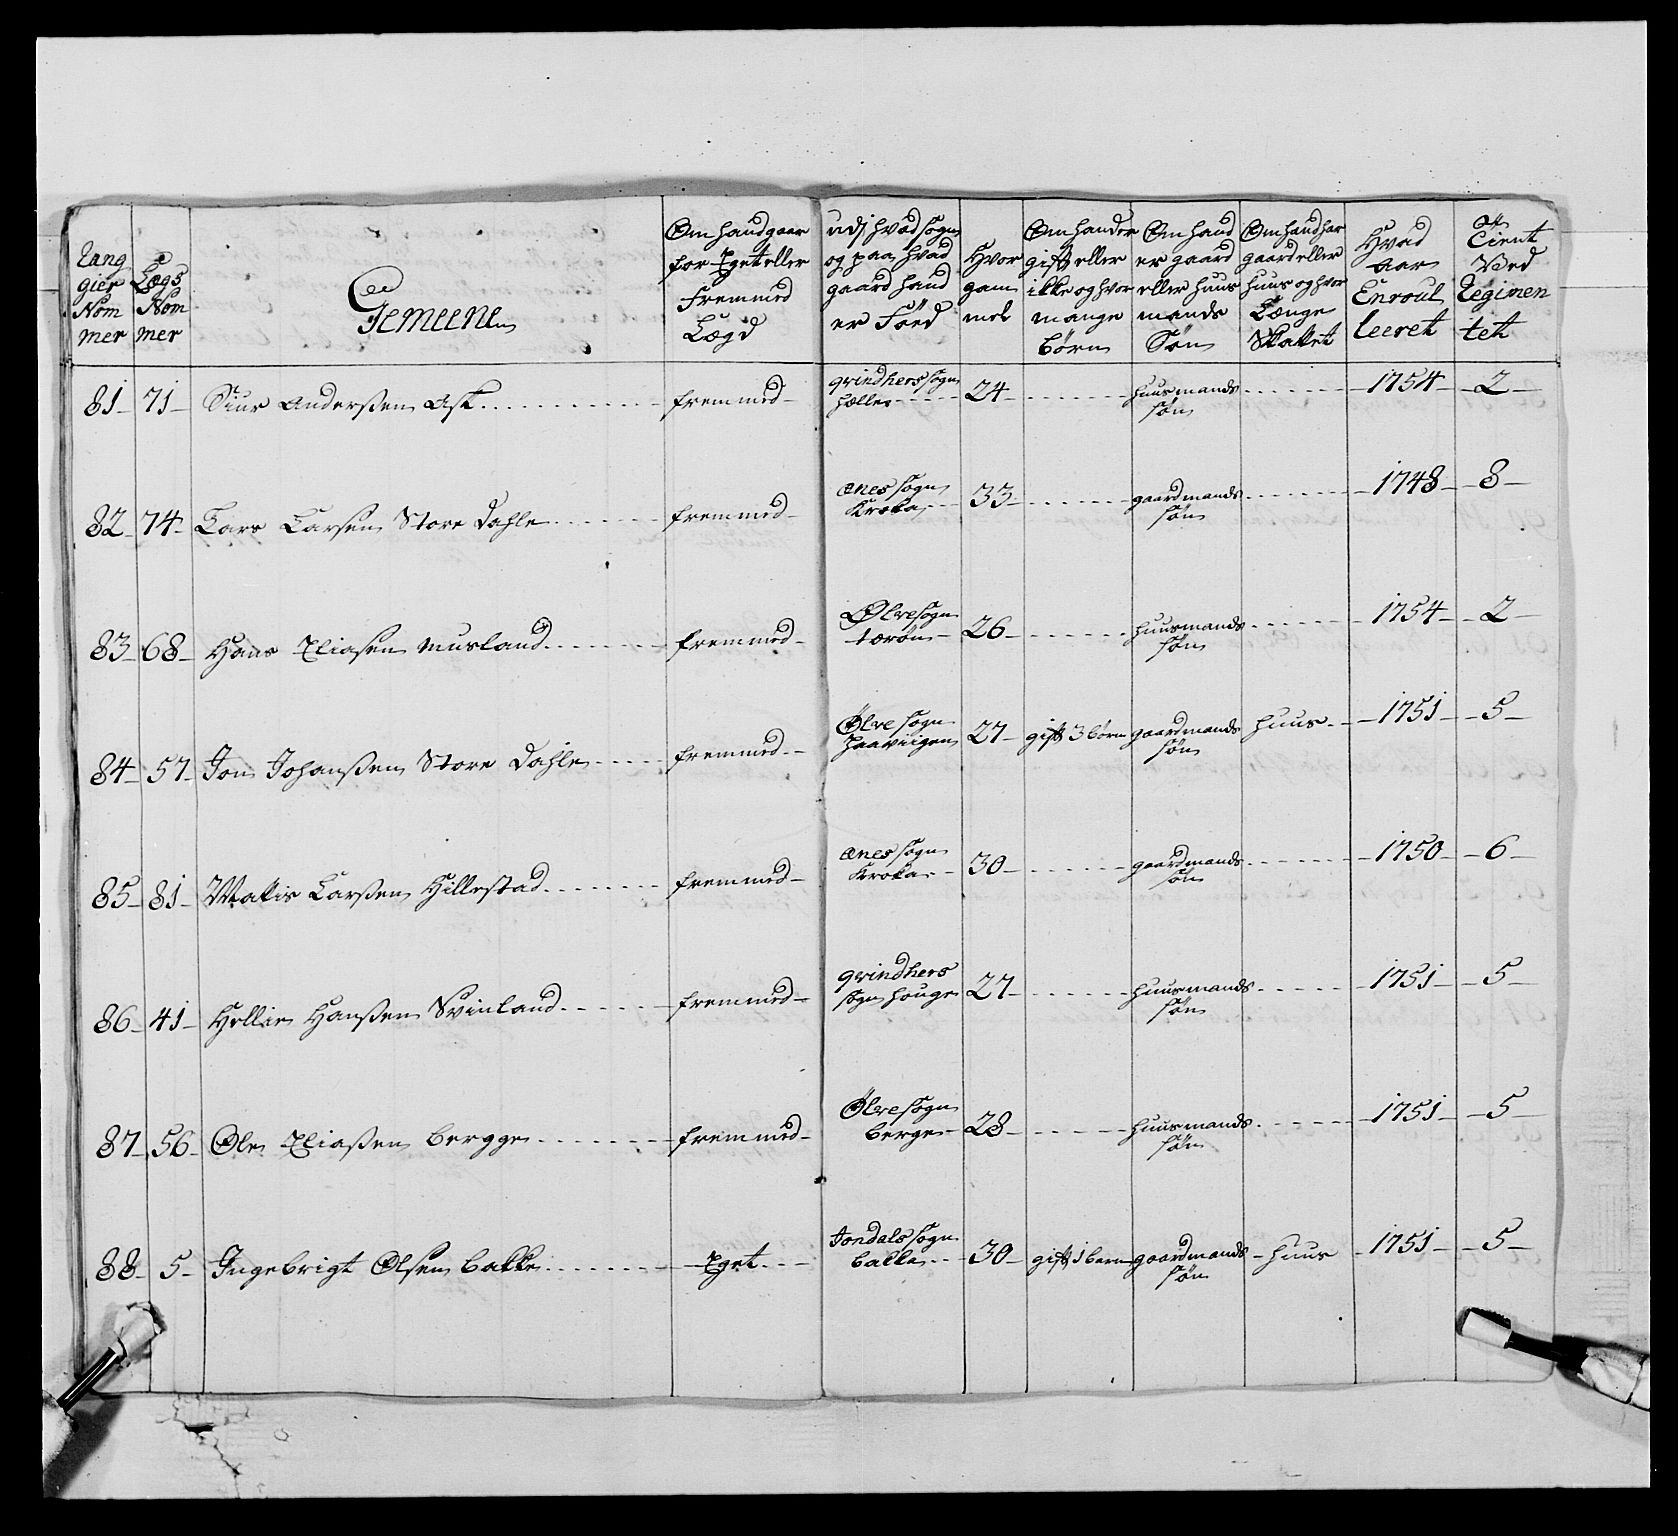 Rang
gier
Nom
mer
Lægs
Nom
mer
Gemeene
Om hand gaar
for Eget eller
fremmed
Lægd
udj hvad Sogn
og paa hvad
gaard hand
er Föed
Hvor
gam
mel
Om hand er
gift eller
ikke og hvor
mange
börn
Om hand
er gaard
eller huus
mands
Sön
Om hand har
gaard eller
huus og hvor
Længe
Skattet
Hvad
aar
Enroul
leeret
Tient
Ved
Regimen
tet
81 71 Siur Anderßen Ask fremmed qvindhers sogn hölle 24 huusmands søn 1754 2
82 74 Lars Larsen Store Dahle fremmed ænes sogn Kroka 33 gaardmands søn 1748 8
83 68 Hans Eliasen musland fremmed Ølve sogn 26 huusmands søn 1754 2
84 57 Jon Johanßen Store Dahle fremmed Ølve sogn Haaviigen 27 gift 3 børn gaardmands søn huus 1751 5
85 81 Mattis Larßen Hillestad fremmed ænes sogn Kroka 30 gaardmands søn 1750 6
86 41 Hellie Hanßen Svinland fremmed qvindhers sogn houge 27 huusmands søn 1751 5
87 56 Ole Eliaßen bergge fremmed Ølve sogn berge 28 huusmands søn 1751 5
88 5 Ingebrigt Olsen bakke Eget Jondals sogn bakke 30 gift 1 barn gaardmands søn huus 1751 5